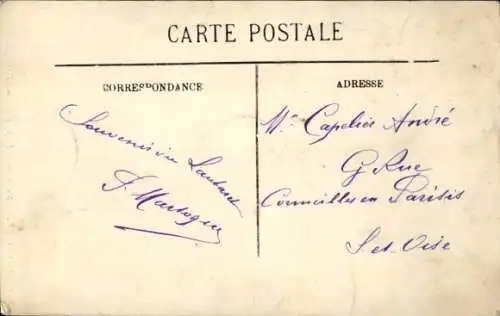 CARTE POSTALE
CORRESPONDANCE
Souvenir du
ADRESSE
Mr Capelier André
G Rue
Cormeilles en Parisis
S et Oise